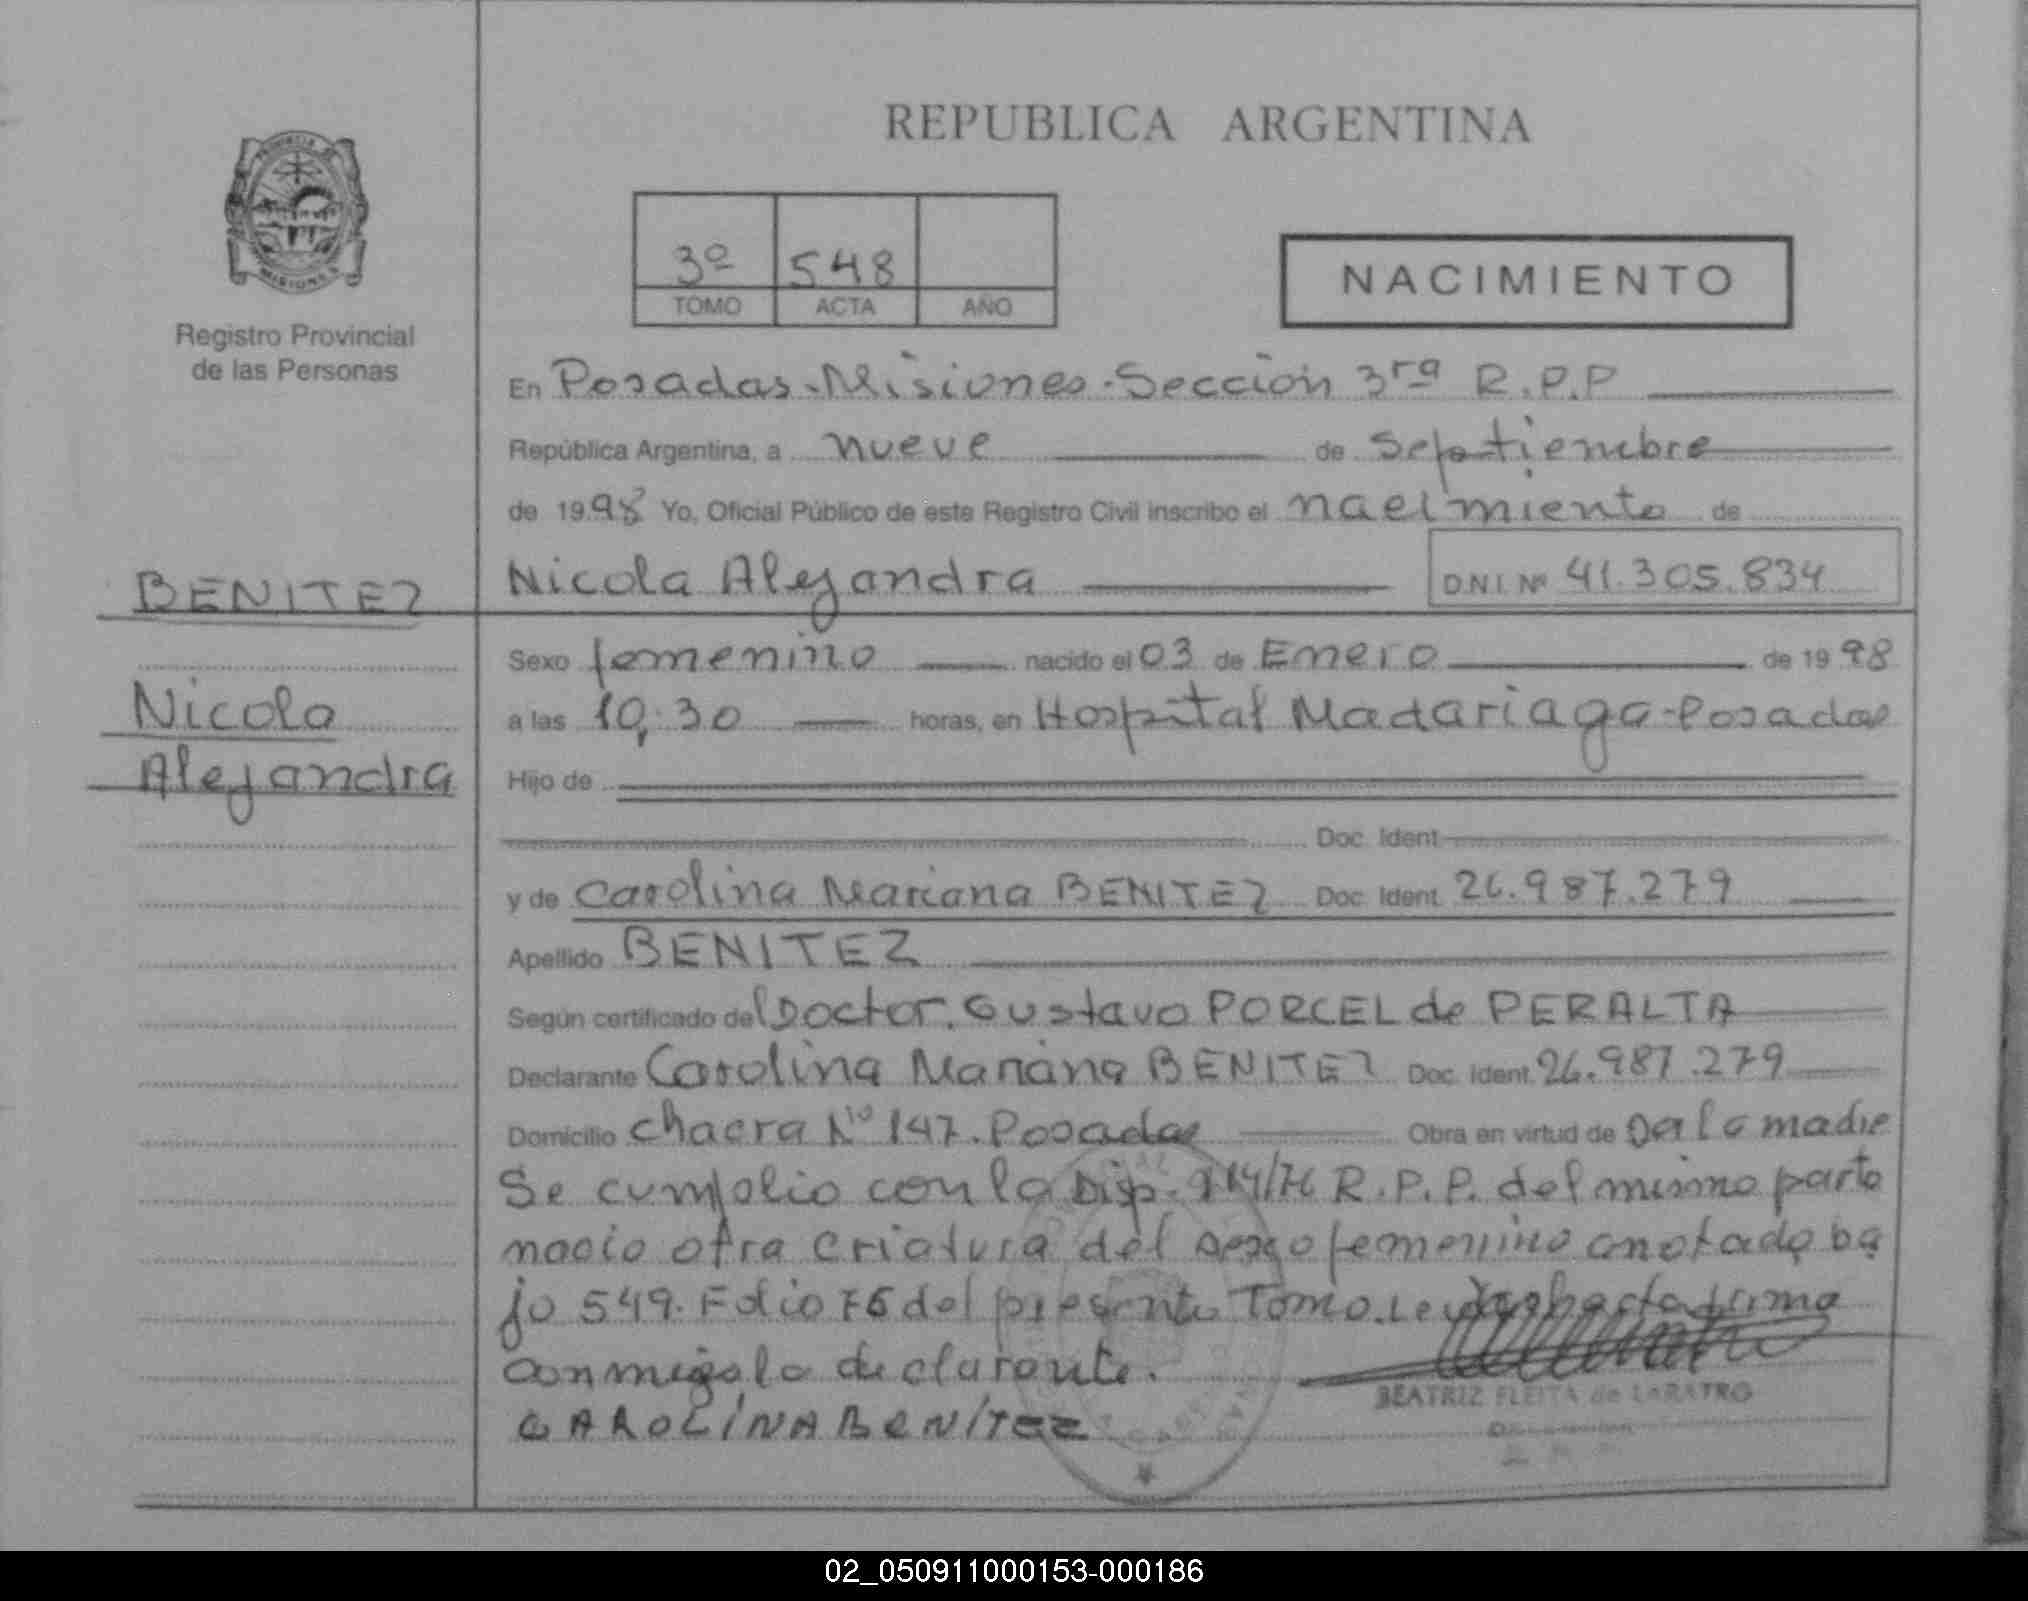 REPUBLICA ARGENTINA
3º 548
TOMO ACTA AÑO
NACIMIENTO
Registro Provincial
de las Personas
En Posadas-Misiones-Sección 3ra R.P.P
República Argentina, a nueve de Septiembre
de 1998 Yo, Oficial Público de este Registro Civil inscribo el nacimiento de
BENITEZ
Nicola Alejandra D.N.I. Nº 41.305.834
Sexo femenino nacido el 03 de Enero de 1998
Nicola
a las 10:30 horas, en Hospital Madariaga-Posadas
Alejandra
Hijo de
Doc. Ident.
y de Carolina Mariana BENITEZ Doc. Ident. 26.987.279
Apellido BENITEZ
Según certificado del Doctor. Gustavo PORCEL de PERALTA
Declarante Carolina Mariana BENITEZ Doc. Ident. 26.987.279
Domicilio Chacra Nº 147. Posadas Obra en virtud de De la madre
Se cumplio con la Disp. /76 R.P.P. del mismo parto
nacio otra criatura del sexo femenino anotada ba
jo 549. Folio 75 del presente Tomo. Leyda acta firma
conmigo la declarante.
CAROLINA BENÍTEZ
BEATRIZ FLEITA de
02_050911000153-000186